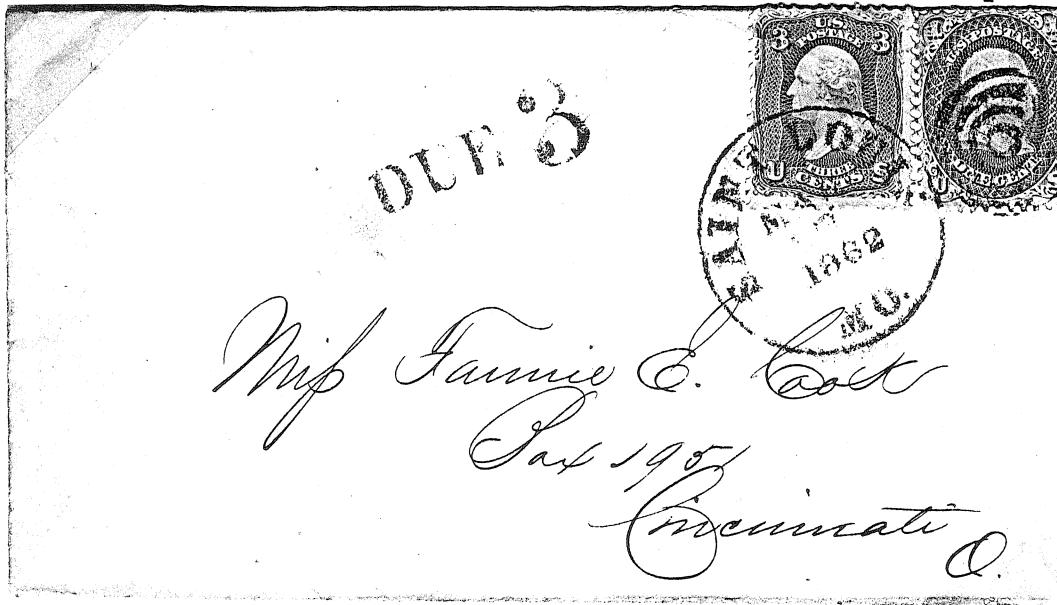 3 U.S. 3
POSTAGE
THREE
U CENTS S
U.S. POSTAGE
ONE CENT
U
DUE 3
SAINT LOU
1862
MO.
Miſs Fannie E. Cook
Box 1951
Cincinnati
O.